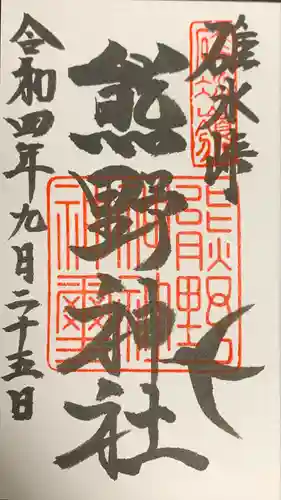 碓氷峠
熊野神社
令和四年九月二十五日